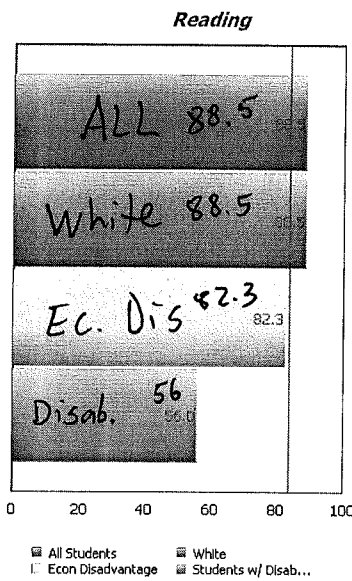 Reading
ALL 88.5
88.5
White 88.5
88.5
Ec. Dis 82.3
82.3
Disab. 56
56.0
0 20 40 60 80 100
All Students White
Econ Disadvantage Students w/ Disab...